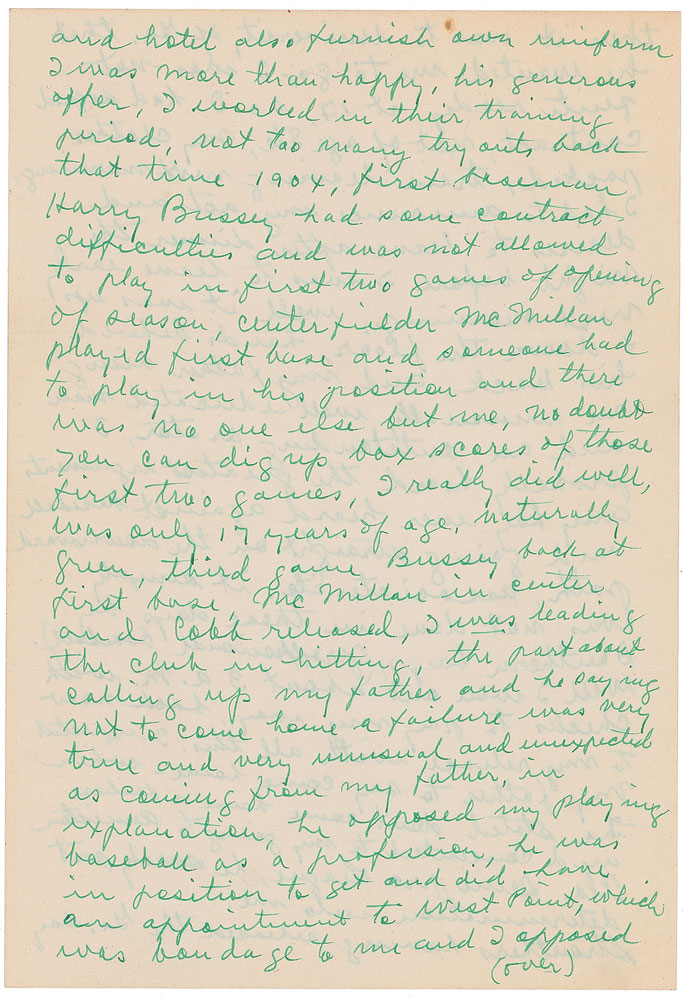 and hotel also furnish own uniform
I was more than happy, his generous
offer, I worked in their training
period, not too many try outs back
that time 1904, first baseman
Harry Bussey had some contract
difficulties and was not allowed
to play in first two games of opening
of season, centerfielder McMillan
played first base and someone had
to play in his position and there
was no one else but me, no doubt
you can dig up box scores of those
first two games, I really did well,
was only 17 years of age, naturally
green, third game Bussey back at
first base, McMillan in center
and Cobb released, I was leading
the club in hitting, the part about
calling up my father and he saying
not to come home a failure was very
true and very unusual and unexpected
as coming from my father, in
explanation, he opposed my playing
baseball as a profession, he was
in position to get and did have
an appointment to West Point, which
was bondage to me and I opposed
(over)